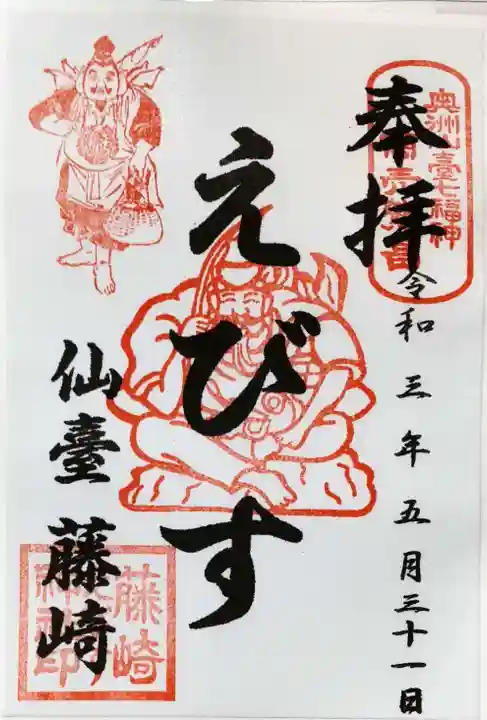 奉拝
奥州仙臺七福神
令和三年五月三十一日
えびす
仙臺
藤崎
藤崎